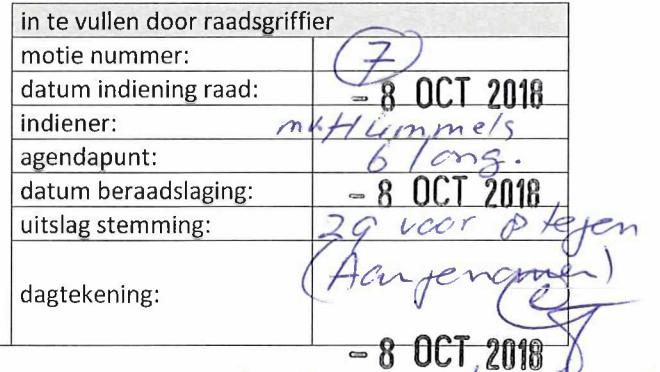 in te vullen door raadsgriffier
motie nummer: 7
datum indiening raad: - 8 OCT 2018
indiener: Hummels
agendapunt: 6
datum beraadslaging: - 8 OCT 2018
uitslag stemming: 29 voor 8 tegen
(Aangenomen)
dagtekening:
- 8 OCT 2018